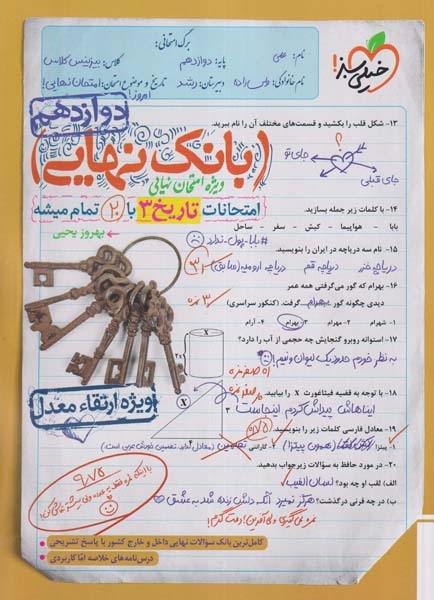 خیلی سبز!
برگ امتحانی:
نام:
پایه: دوازدهم
کلاس: بیزینس کلاس
نام خانوادگی:
دبیرستان: رشد
تاریخ و موضوع امتحان: امتحان نهایی!
امروز!
۱۳- شکل قلب را بکشید و قسمت‌های مختلف آن را نام ببرید.
؟
جای تو
جای قبلی
دوازدهم
بانک نهایی
ویژه امتحان نهایی
امتحانات تاریخ ۳ با ۲۰ تمام میشه
بهروز یحیی
۱۴- با کلمات زیر جمله بسازید.
بابا - هواپیما - کیش - سفر - ساحل
#بابا-پول-نداره
۱۵- نام سه دریاچه در ایران را بنویسید.
دریاچه خزر دریاچه قم دریاچه ارومیه (سابق)
۱۶- بهرام که گور می‌گرفتی همه عمر
دیدی چگونه گور بهرام گرفت. (کنکور سراسری)
۱- شهرام ۲- مهرام ۳- بهرام ۴- آرام
۱۷- استوانه روبرو گنجایش چه حجمی از آب را دارد؟
به نظر خودم حدود یک لیوان و نیم!
X
2x
۱۸- با توجه به قضیه فیثاغورث X را بیابید.
ایناهاش پیداش کردم اینجاست
X
۳
۴
۱۹- معادل فارسی کلمات زیر را بنویسید.
۱- پیتزا
(همون پیتزا)
۲- گارانتی تضمین
۲۰- در مورد حافظ به سؤالات زیر جواب بدهید.
الف) لقب او چه بود؟ لسان الغیب
ب) در چه قرنی درگذشت؟ هرگز نمیرد آنکه دلش زنده شد به عشق
ویژه ارتقاء معدل
۹/۷۵
کامل‌ترین بانک سوالات نهایی داخل و خارج کشور با پاسخ تشریحی
درس‌نامه‌های خلاصه اما کاربردی